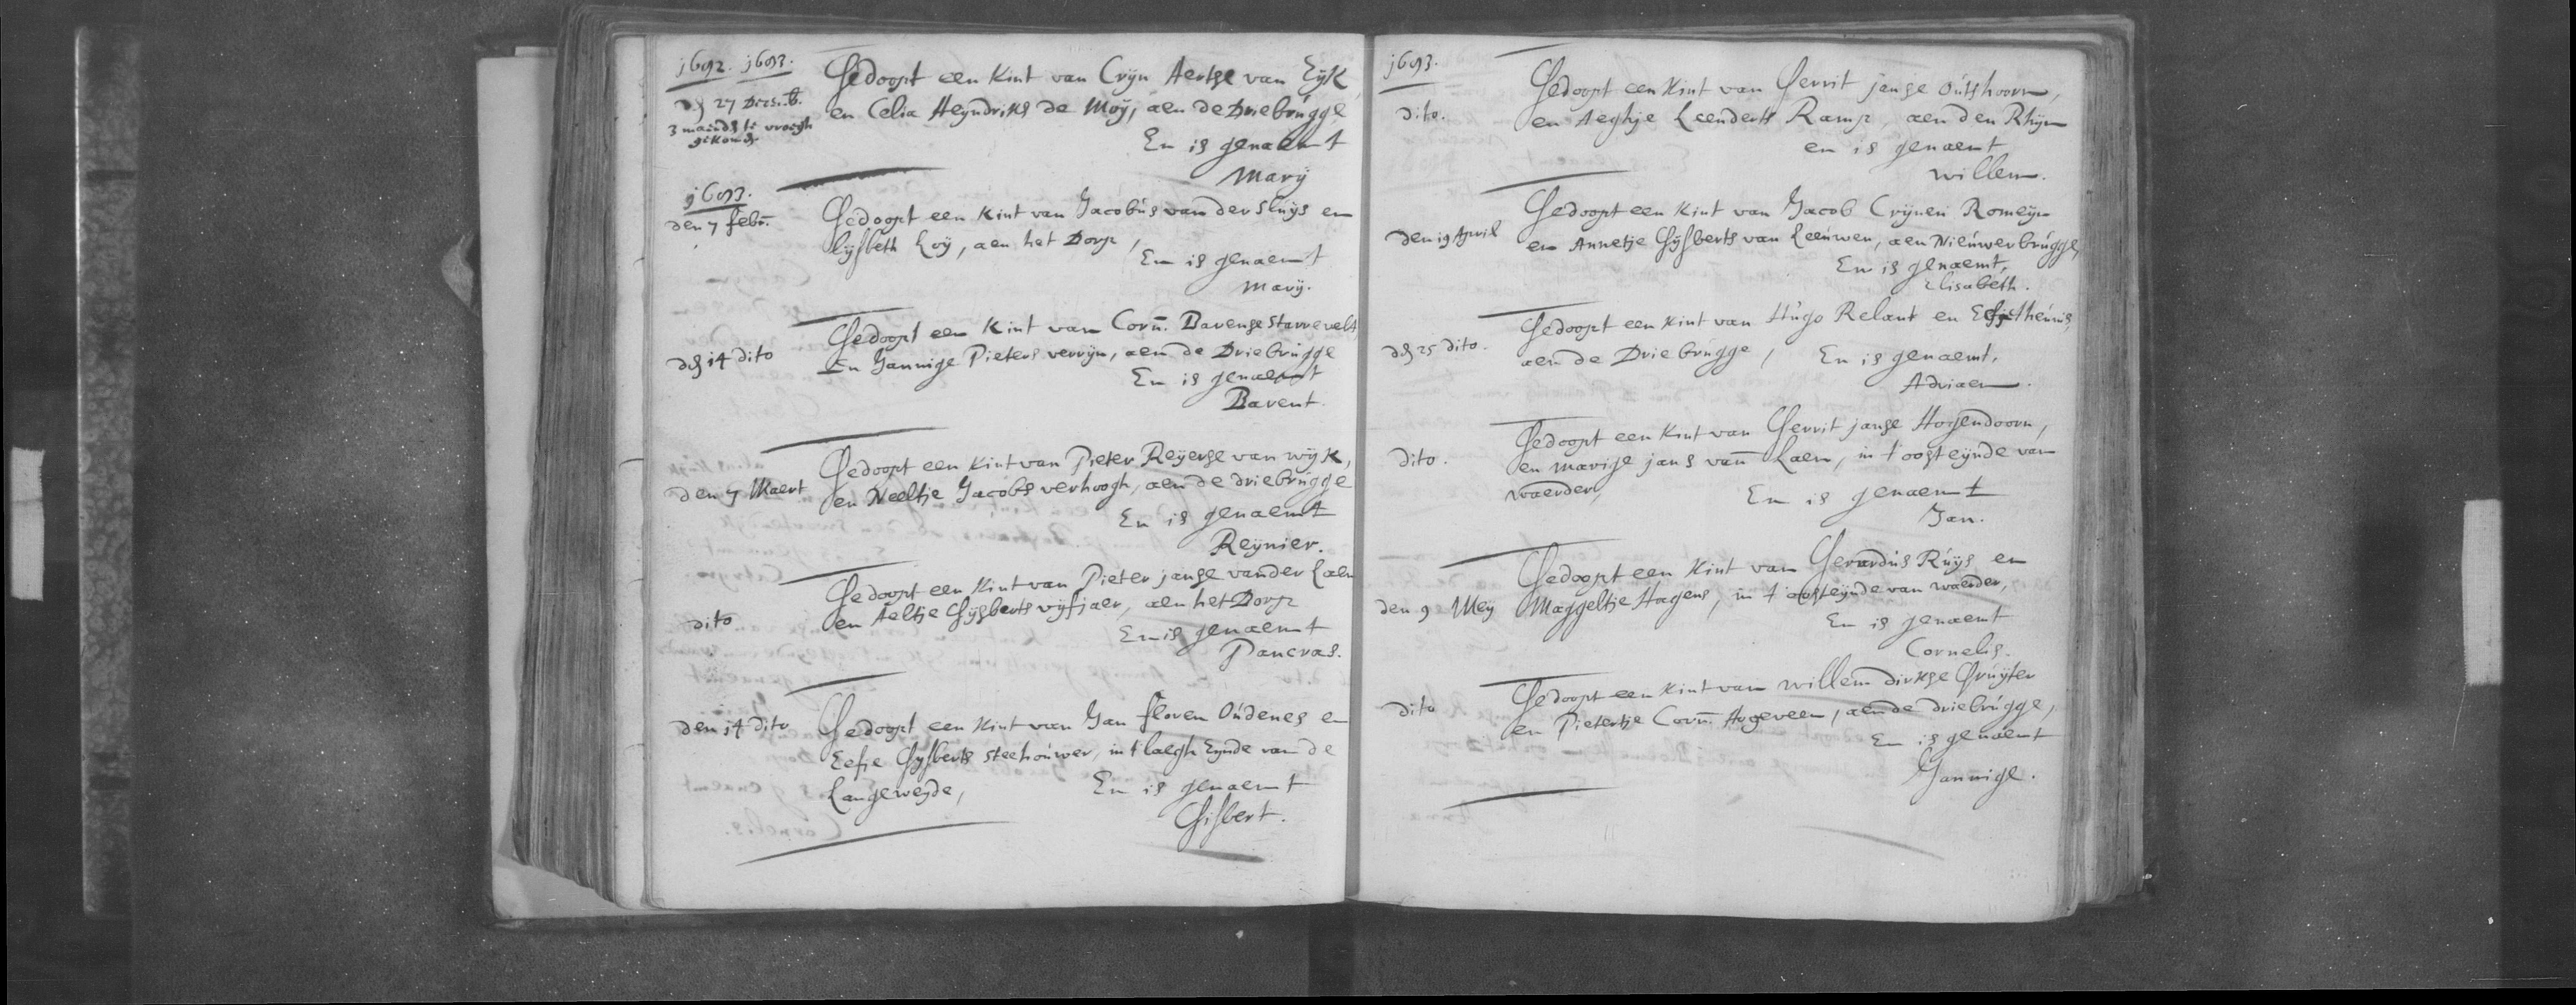 j692. j693.
Gedoopt een Kint van Crijn Aertse van Eijk
ds 27 Decemb.
en Celia Heyndriks de Moij, aen de Driebrugge
3 maends te vroegh
En is genaemt
Marij
j693.
den 7 febr.
Gedoopt een Kint van Jacobus van der Sluijs en
Lijsbeth Loij, aen het Dorp,
En is genaemt
Marij.
ds 14 dito
Gedoopt een Kint van Corn. Barense Starrevelt
En Jannige Pieters verrijn, aen de Driebrugge
En is genaemt
Barent.
den 7 Maert
Gedoopt een Kint van Pieter Reijerse van wijk,
en Neeltje Jacobs verhoogh, aen de driebrugge
En is genaemt
Reijnier.
dito
Gedoopt een Kint van Pieter janse vander Laen
en Aeltje Gijsberts vijfjaer, aen het Dorp
En is genaemt
Pancras.
den 14 dito
Gedoopt een Kint van Jan floren Oudenes en
Eefje Gijsberts Steehouwer, in t laegh Eynde van de
Langeweyde,
En is genaemt
Gisbert.
j693.
dito.
Gedoopt een Kint van Gerrit janse Outshoorn,
en Aeghje Leenderts Ramp, aen den Rhijn
en is genaemt
willem.
den 19 April
Gedoopt een Kint van Jacob Crijnen Romeijn
en Annetje Gijsberts van Leeuwen, aen Nieuwerbrugge,
En is genaemt,
Elisabeth.
ds 25 dito.
Gedoopt een Kint van Hugo Relant en Theunis,
aen de Driebrugge, En is genaemt,
Adriaen.
dito.
Gedoopt een Kint van Gerrit janse Hogendoorn,
en marige jans van Laen, in t oosteynde van
waerder,
En is genaemt
Jan.
den 9 Mey
Gedoopt een Kint van Gerardus Ruijs en
Maggeltje Hagens, in t oosteynde van waerder,
En is genaemt
Cornelis.
dito
Gedoopt een Kint van willem dirkse Gruijter
en Pietertje Corn. Hogeveen, aen de driebrugge,
En is genaemt
Jannige.